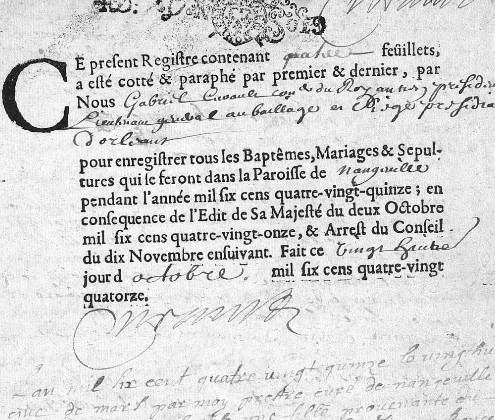 CE present Registre contenant quatre feüillets,
a esté cotté & paraphé par premier & dernier, par
Nous Gabriel Curault cons du Roy president
Lieutenant general au bailliage et siege presidial
D'orleans
pour enregistrer tous les Baptêmes, Mariages & Sepul-
tures qui se feront dans la Paroisse de Nangeville
pendant l'année mil six cens quatre-vingt-quinze ; en
consequence de l'Edit de Sa Majesté du deux Octobre
mil six cens quatre-vingt-onze, & Arrest du Conseil
du dix Novembre ensuivant. Fait ce Vingt
jour d octobre. mil six cens quatre-vingt
quatorze.
L'an mil six cent quatre vingt quinze le vingt
de mars par moy prestre curé de nangeville